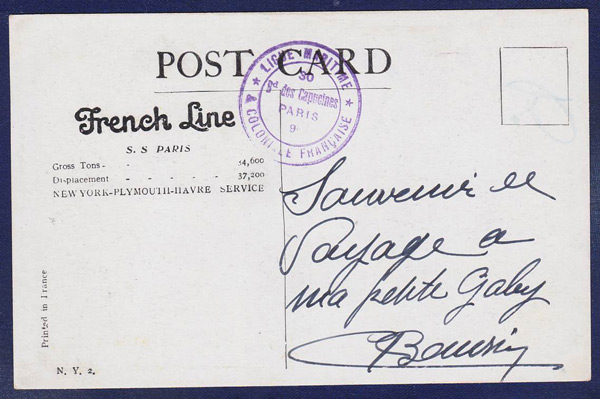 POST CARD
French Line
S. S PARIS
Gross Tons - - - 34,600
Displacement - - - - - 37,200
NEW YORK-PLYMOUTH-HAVRE SERVICE
LIGUE MARITIME
30
Bd des Capucines
PARIS
9
& COLONIALE FRANÇAISE
Souvenir de
Voyage a
ma petite Gaby
Printed in France
N. Y. 2.